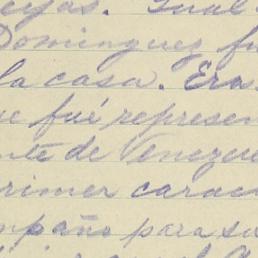 ejas. Igual
Dominguez fu
la casa. Era
ue fué represen
nte de Venezue
primer carac
mpaño para su